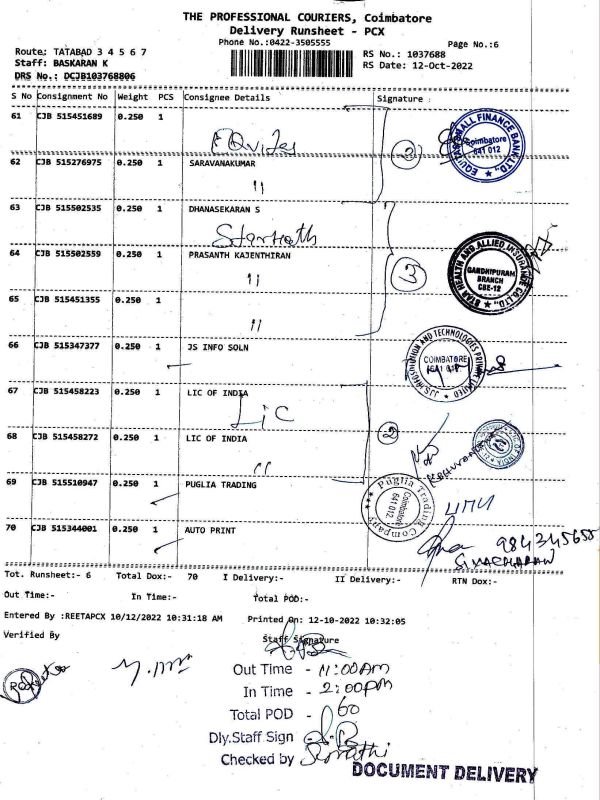 THE PROFESSIONAL COURIERS, Coimbatore
Delivery Runsheet - PCX
Phone No.:0422-3505555
Page No.:6
Route: TATABAD 3 4 5 6 7
RS No.: 1037688
Staff: BASKARAN K
RS Date: 12-Oct-2022
DRS No.: DCJB103768806
S No Consignment No Weight PCS Consignee Details Signature
61 CJB 515451689 0.250 1
Equitas
2
EQUITAS SMALL FINANCE BANK LTD.
Coimbatore
641 012
62 CJB 515276975 0.250 1 SARAVANAKUMAR
"
63 CJB 515502535 0.250 1 DHANASEKARAN S
Starhath
64 CJB 515502559 0.250 1 PRASANTH KAJENTHIRAN
"
3
STAR HEALTH AND ALLIED INSURANCE CO. LTD.,
GANDHIPURAM
BRANCH
CBE-12
65 CJB 515451355 0.250 1
"
66 CJB 515347377 0.250 1 JS INFO SOLN
COIMBATORE
67 CJB 515458223 0.250 1 LIC OF INDIA
LIC
2
68 CJB 515458272 0.250 1 LIC OF INDIA
"
69 CJB 515510947 0.250 1 PUGLIA TRADING
Puglia Trading Company
Coimbatore
641 012
70 CJB 515344001 0.250 1 AUTO PRINT
984345655
SIVACHARAN
Tot. Runsheet:- 6 Total Dox:- 70 I Delivery:- II Delivery:- RTN Dox:-
Out Time:- In Time:- Total POD:-
Entered By :REETAPCX 10/12/2022 10:31:18 AM Printed On: 12-10-2022 10:32:05
Verified By Staff Signature
Out Time - 11:00AM
In Time - 2:00PM
Total POD - 60
Dly.Staff Sign -
Checked by
DOCUMENT DELIVERY